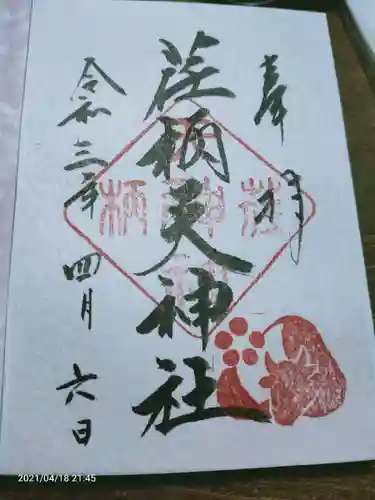 奉拝
荏柄天神社
令和三年
四月六日
2021/04/18 21:45